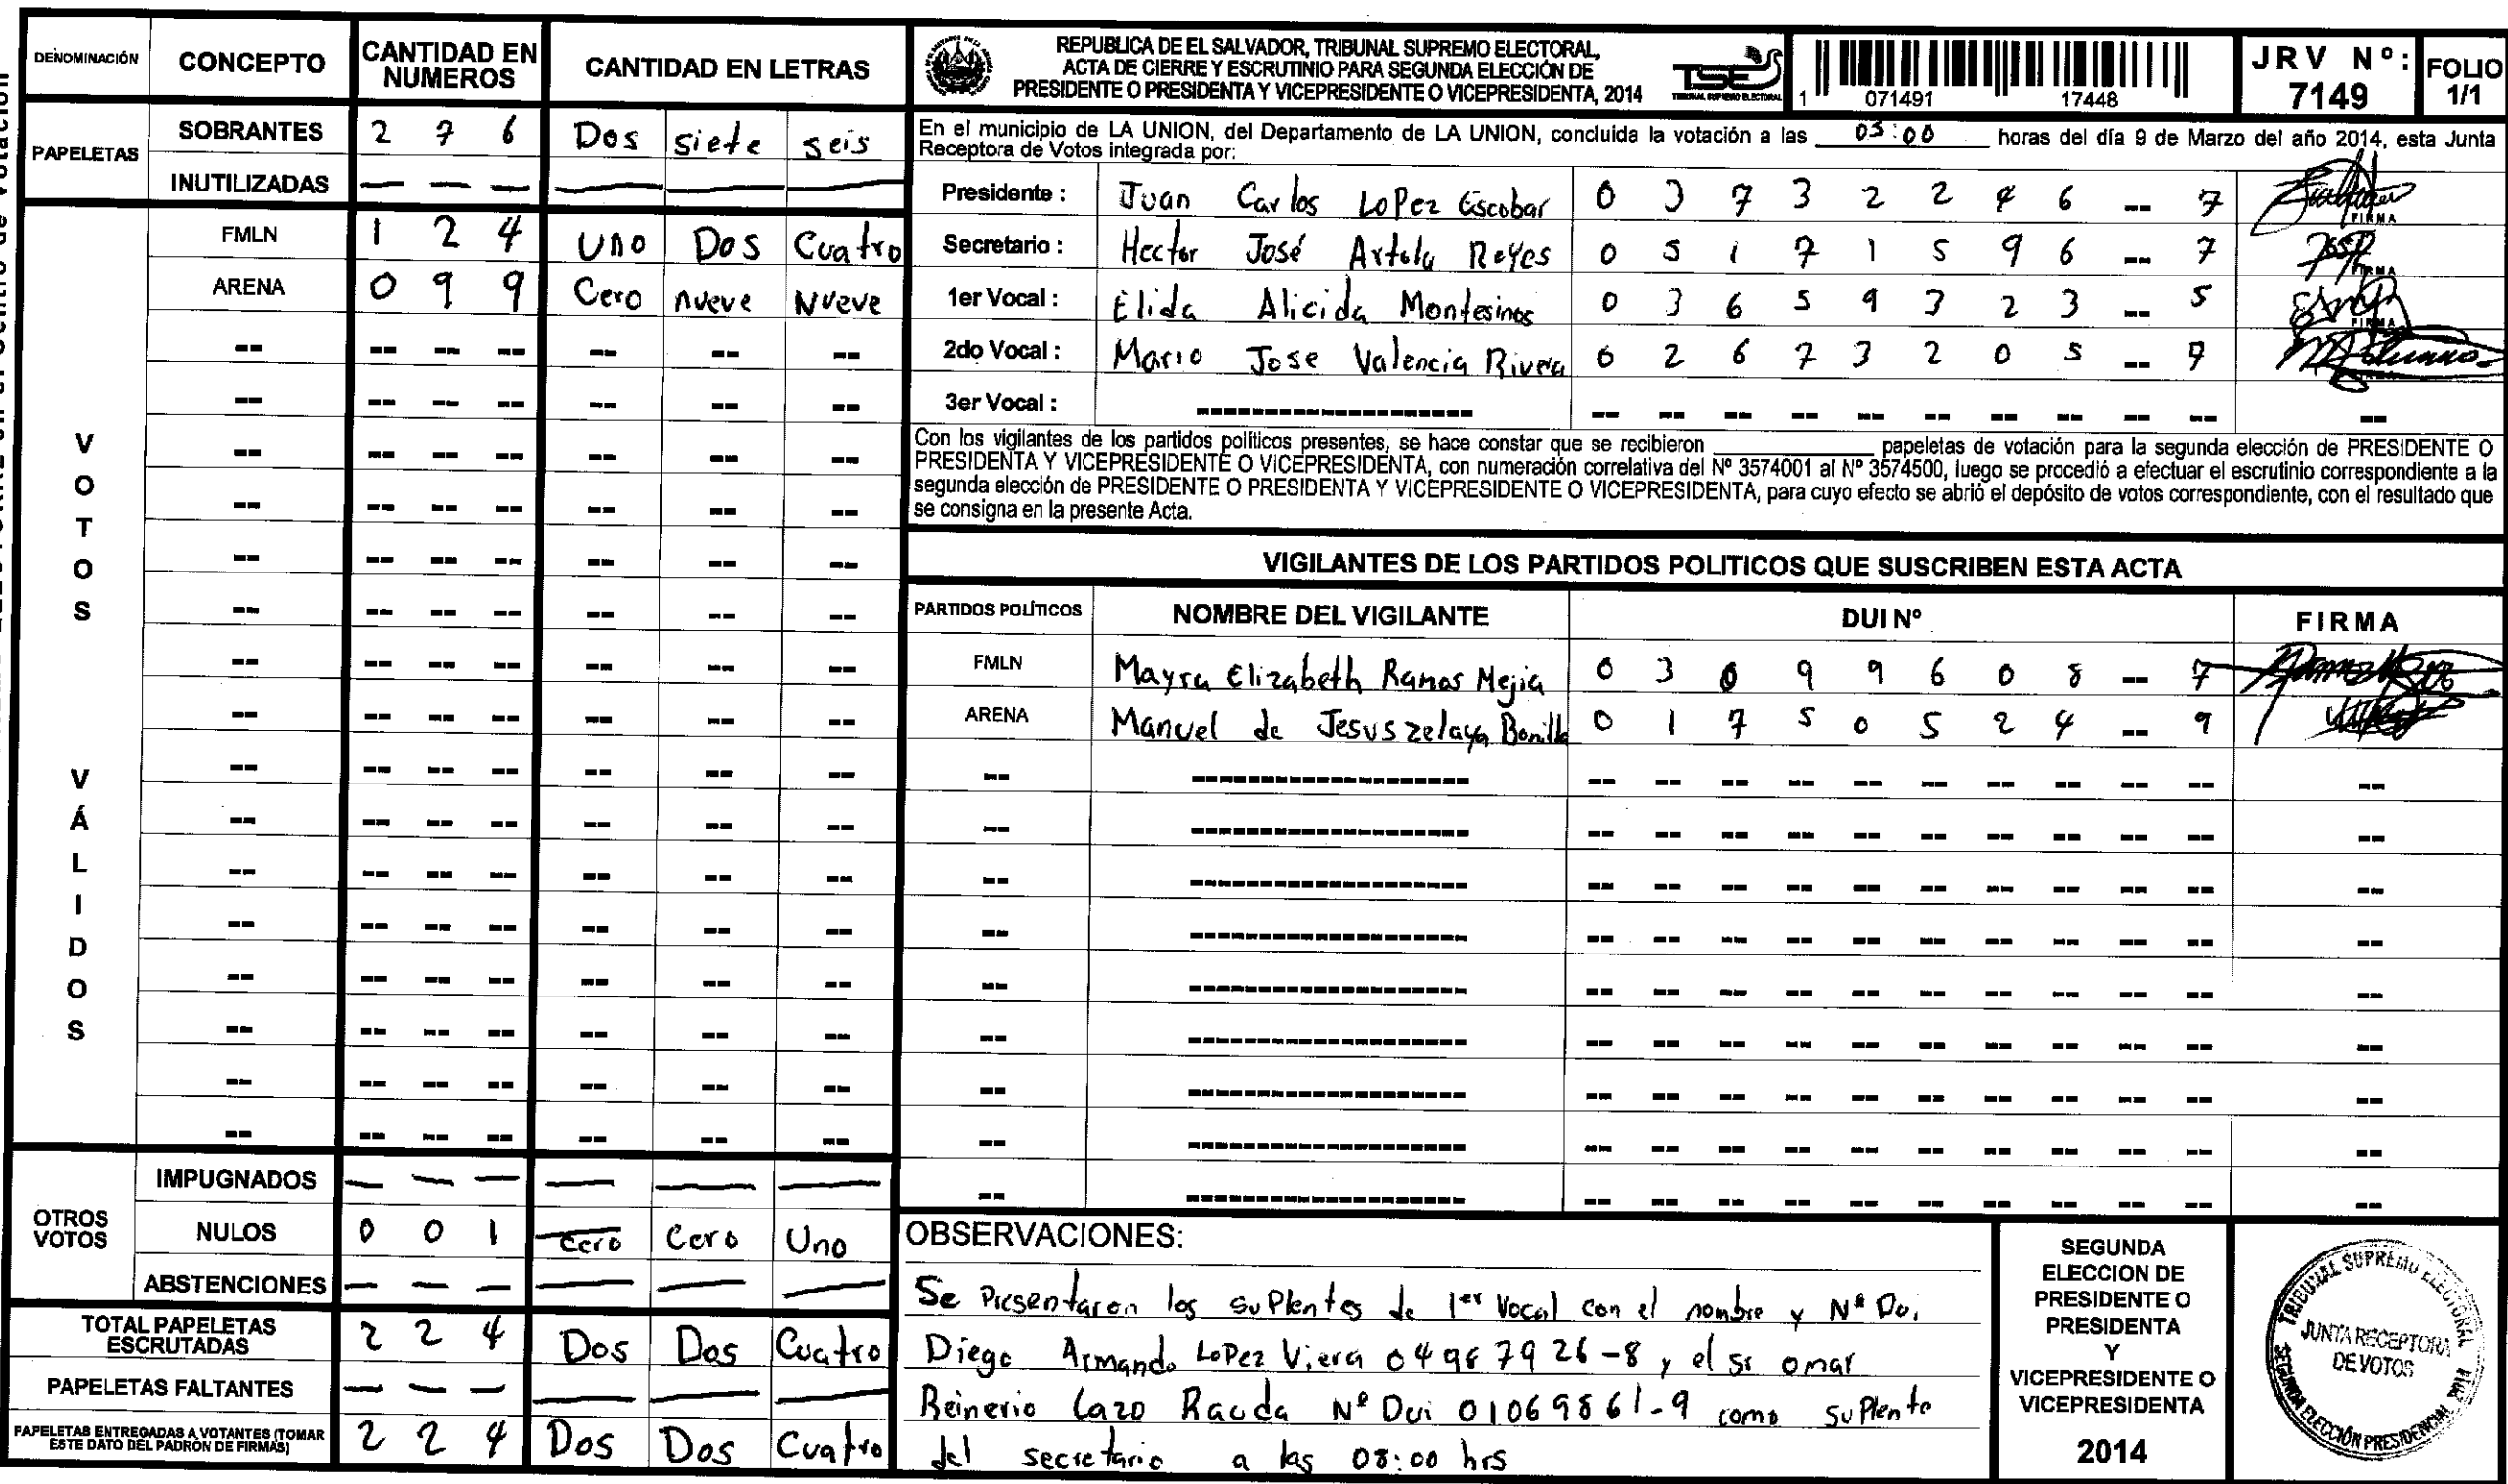 DENOMINACIÓN CONCEPTO CANTIDAD EN NUMEROS CANTIDAD EN LETRAS
PAPELETAS
SOBRANTES 2 7 6 Dos siete seis
INUTILIZADAS — — — — — —
VOTOS VÁLIDOS
FMLN 1 2 4 Uno Dos Cuatro
ARENA 0 9 9 Cero nueve Nueve
OTROS VOTOS
IMPUGNADOS — — — — — —
NULOS 0 0 1 Cero Cero Uno
ABSTENCIONES — — — — — —
TOTAL PAPELETAS ESCRUTADAS 2 2 4 Dos Dos Cuatro
PAPELETAS FALTANTES — — — — — —
PAPELETAS ENTREGADAS A VOTANTES (TOMAR ESTE DATO DEL PADRÓN DE FIRMAS) 2 2 4 Dos Dos Cuatro
REPUBLICA DE EL SALVADOR, TRIBUNAL SUPREMO ELECTORAL,
ACTA DE CIERRE Y ESCRUTINIO PARA SEGUNDA ELECCIÓN DE
PRESIDENTE O PRESIDENTA Y VICEPRESIDENTE O VICEPRESIDENTA, 2014
TSE
TRIBUNAL SUPREMO ELECTORAL
1 071491 17448
JRV Nº: 7149
FOLIO 1/1
En el municipio de LA UNION, del Departamento de LA UNION, concluida la votación a las 05:00 horas del día 9 de Marzo del año 2014, esta Junta
Receptora de Votos integrada por:
Presidente : Juan Carlos LoPez Escobar 0 3 7 3 2 2 4 6 -- 7 FIRMA
Secretario : Hector José Artola Reyes 0 5 1 7 1 5 9 6 -- 7 FIRMA
1er Vocal : Elida Alicida Montesinos 0 3 6 5 9 3 2 3 -- 5 FIRMA
2do Vocal : Mario Jose Valencia Rivera 0 2 6 7 3 2 0 5 -- 7
3er Vocal : --
Con los vigilantes de los partidos políticos presentes, se hace constar que se recibieron ______ papeletas de votación para la segunda elección de PRESIDENTE O
PRESIDENTA Y VICEPRESIDENTE O VICEPRESIDENTA, con numeración correlativa del Nº 3574001 al Nº 3574500, luego se procedió a efectuar el escrutinio correspondiente a la
segunda elección de PRESIDENTE O PRESIDENTA Y VICEPRESIDENTE O VICEPRESIDENTA, para cuyo efecto se abrió el depósito de votos correspondiente, con el resultado que
se consigna en la presente Acta.
VIGILANTES DE LOS PARTIDOS POLITICOS QUE SUSCRIBEN ESTA ACTA
PARTIDOS POLÍTICOS NOMBRE DEL VIGILANTE DUI Nº FIRMA
FMLN Mayra Elizabeth Ramos Mejia 0 3 0 9 9 6 0 8 -- 7
ARENA Manuel de Jesus zelaya Bonilla 0 1 7 5 0 5 2 4 -- 9
OBSERVACIONES:
Se Presentaron los suPlentes de 1er Vocal con el nombre y Nº Dui
Diego Armando LoPez Viera 04967926-8, el sr omar
Reinerio Lazo Rauda Nº Dui 01069861-9 como suPlente
del secretario a las 08:00 hrs
SEGUNDA
ELECCION DE
PRESIDENTE O
PRESIDENTA
Y
VICEPRESIDENTE O
VICEPRESIDENTA
2014
TRIBUNAL SUPREMO ELECTORAL
JUNTA RECEPTORA
DE VOTOS
SEGUNDA ELECCIÓN PRESIDENCIAL 2014